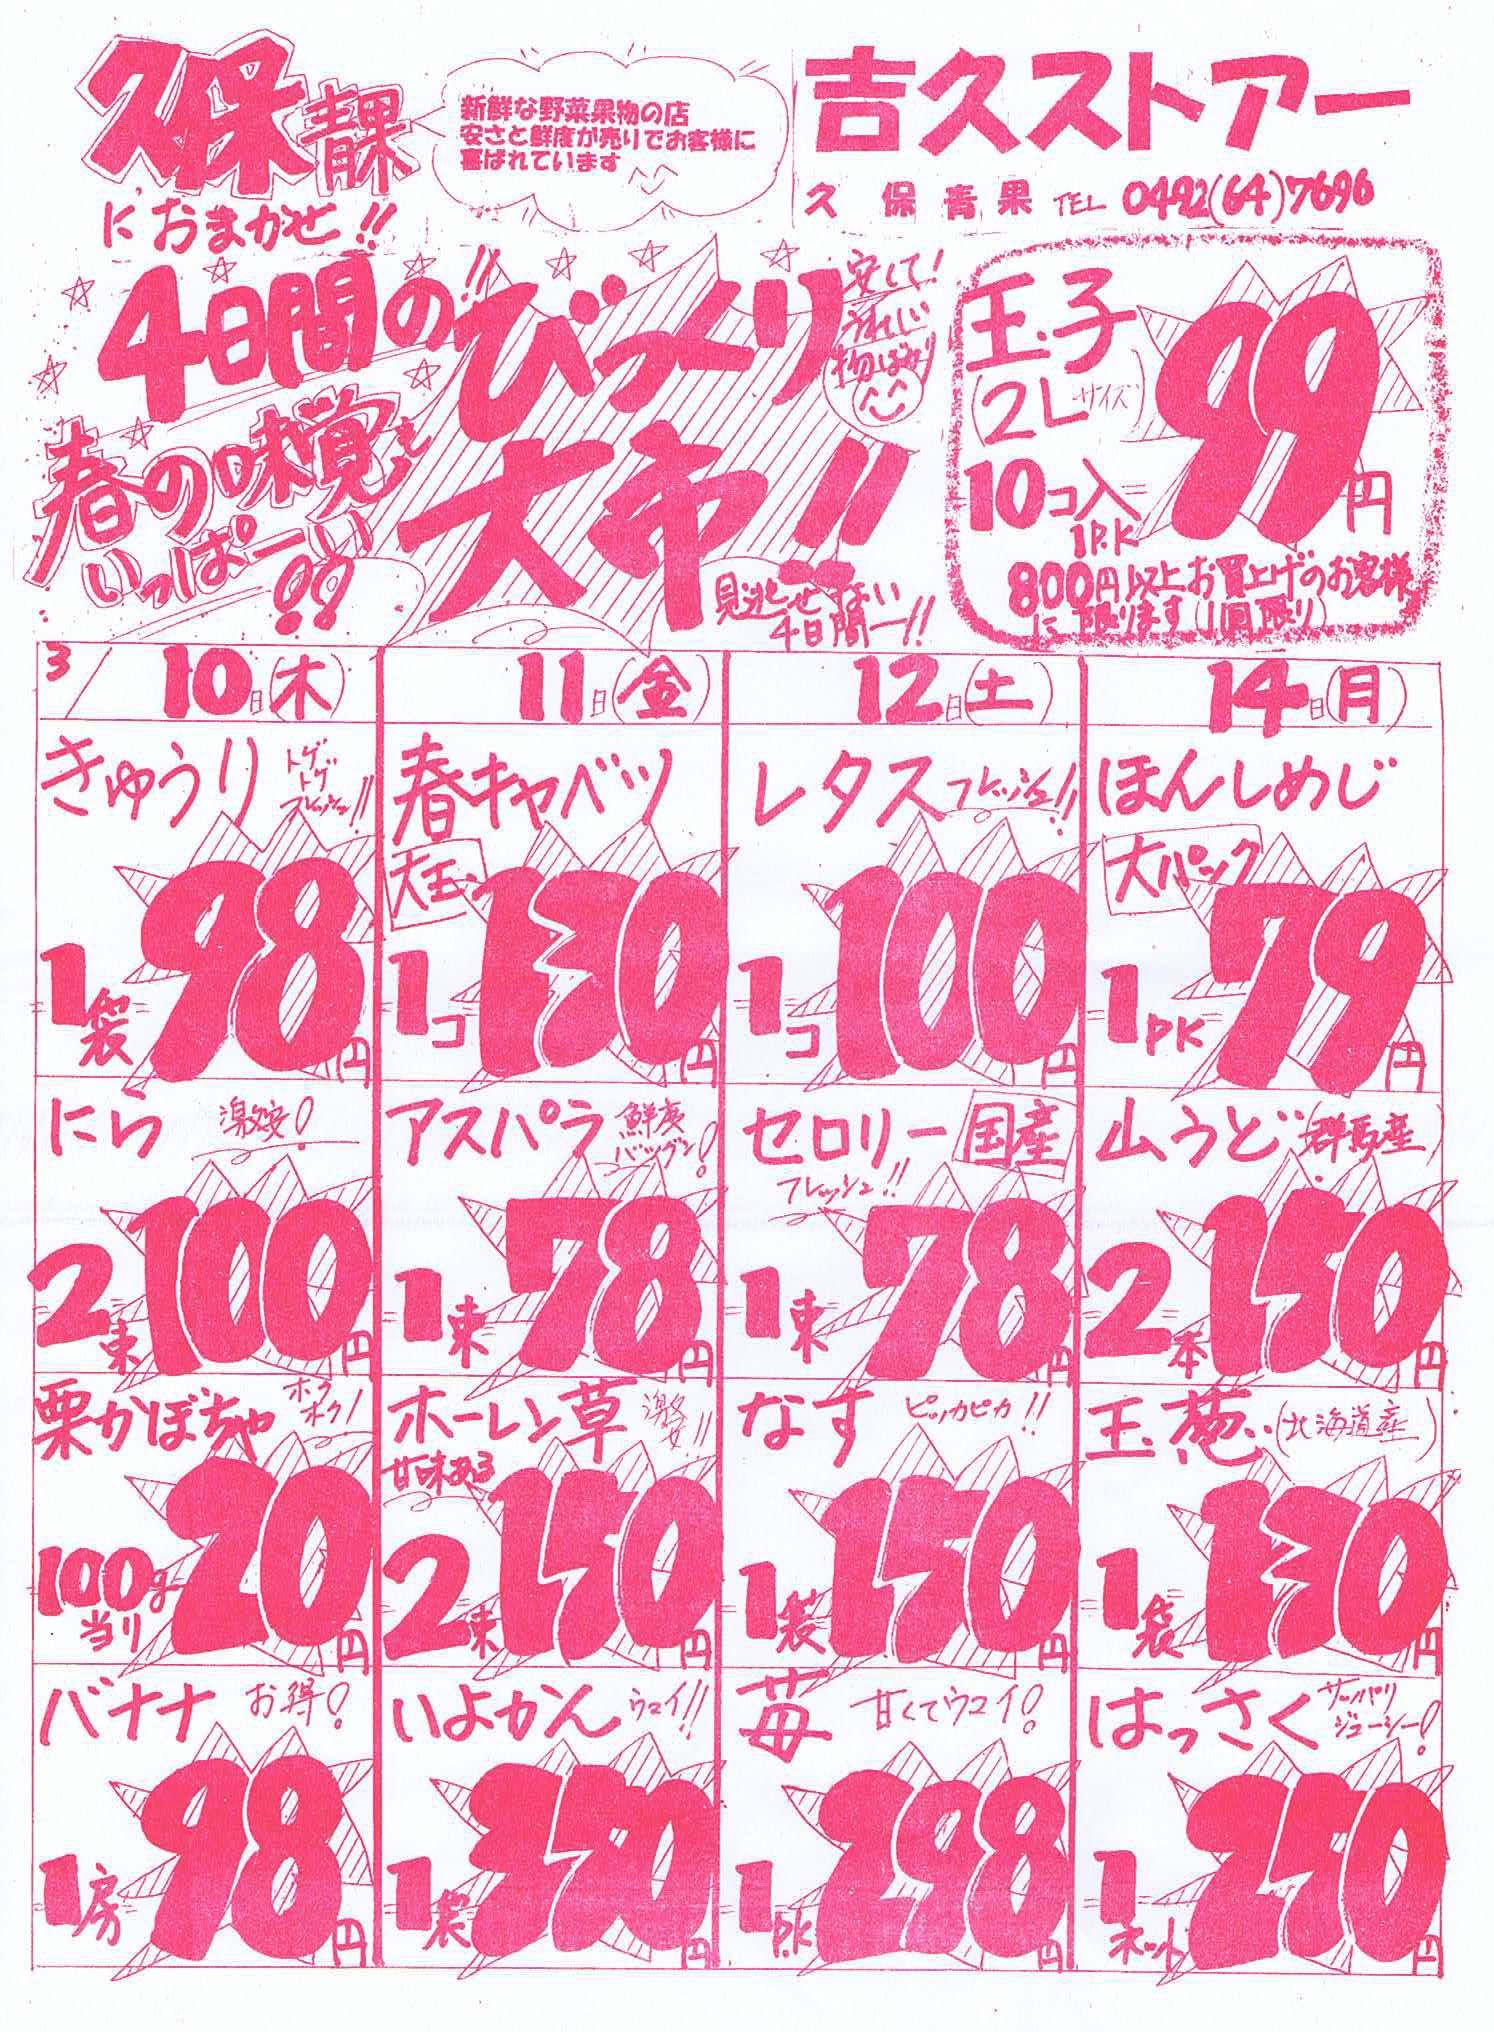 久保青果
におまかせ!!
新鮮な野菜果物の店
安さと鮮度が売りでお客様に
喜ばれています
吉久ストアー
久保青果 TEL 0492(64)7696
4日間の!!びっくり
大市!!
安くて!
うれしい
物ばかり
春の味覚も
いっぱーい!!
見逃せない
4日間ー!!
玉子
(2Lサイズ)
10コ入
1P.K
99円
800円以上お買上げのお客様
に限ります(1回限り)
3/10日(木)
11日(金)
12日(土)
14日(月)
きゅうり トゲトゲフレッシュ!!
1袋 98円
春キャベツ
大玉
1コ 130円
レタス フレッシュ!!
1コ 100円
ほんしめじ
大パック
1PK 79円
にら 激安!
2束 100円
アスパラ 鮮度バツグン!
1束 78円
セロリー 国産
フレッシュ!!
1束 78円
山うど(群馬産)
2本 150円
栗かぼちゃ ホクホク!
100g当り 20円
ホーレン草 激安!!
甘味ある
2束 150円
なす ピッカピカ!!
1袋 150円
玉葱(北海道産)
1袋 130円
バナナ お得!
1房 98円
いよかん ウマイ!!
1袋 350円
苺 甘くてウマイ!
1P.K 298円
はっさく サッパリジューシー!
1ネット 250円